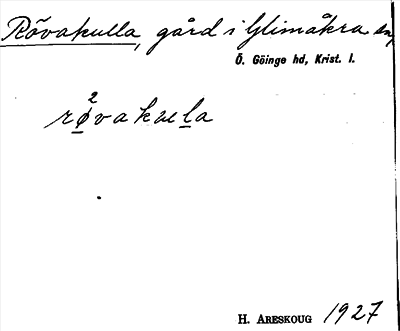 Rövakulla, gård i Glimåkra sn,
Ö. Göinge hd, Krist. l.
rø²vakulla
H. ARESKOUG 1927